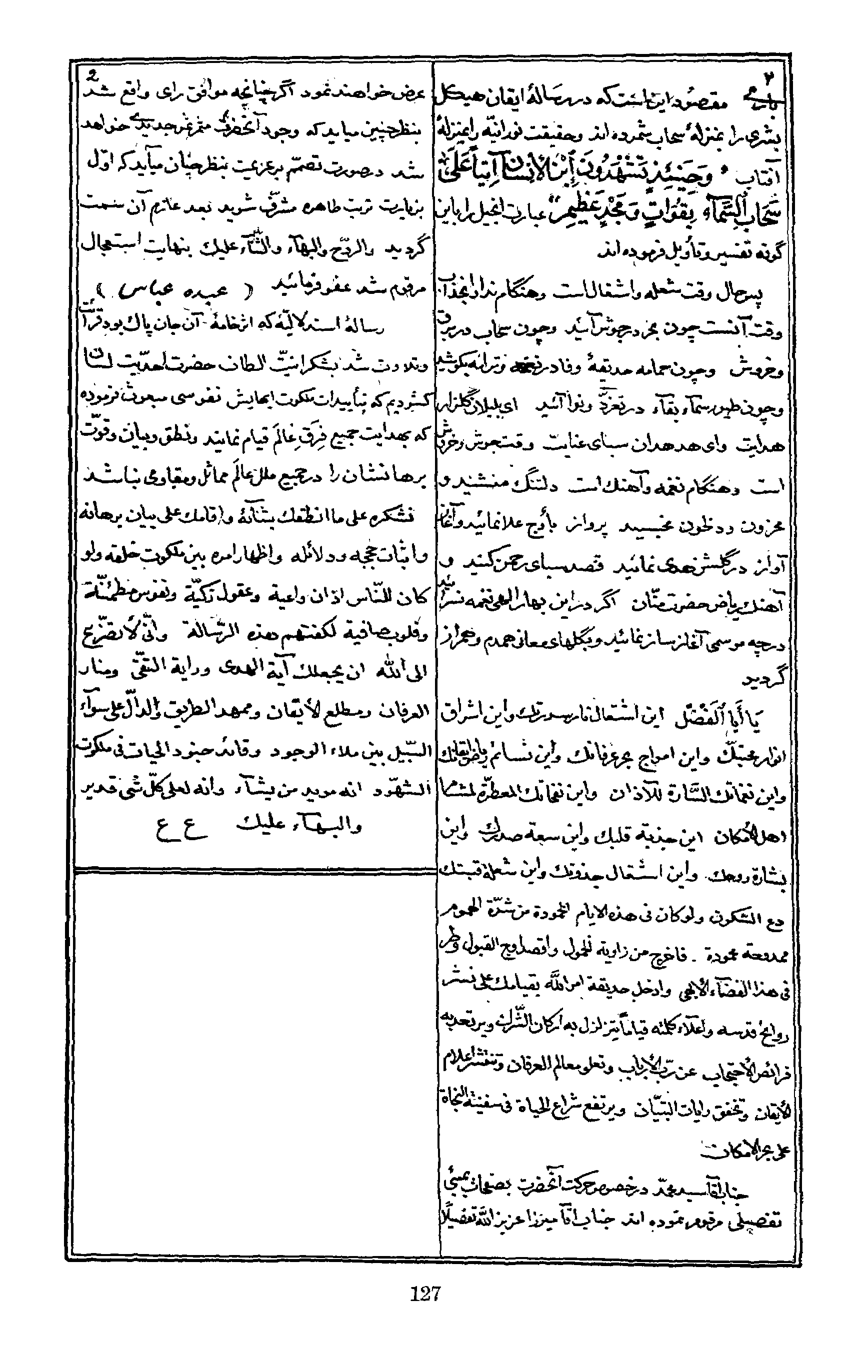 ۲
باقی مقصود این است که در رسالهٔ ایقان هیکل
بشری را بمنزلهٔ سحاب شمرده اند وحقیقت نورانیّه را بمنزلهٔ
آفتاب و حینئذٍ تشهدون إبن الانسان آتیاً علی
سحاب السّماء بقوّاتٍ ومجدٍ عظیم عبارت انجیل را باین
گونه تفسیر وتأویل فرموده اند
پس حال وقت شعله واشتعال است وهنگام نداء انجذاب
وقت آنست چون بحر درجوش آئید وچون سحاب در برق
وخروش وچون حمامه حدیقهٔ وفا در نغمه وترانه بکوشید
وچون طیور سماء بقاء در تغرّد ونوا آئید ای بلبلان گلزار
هدایت وای هدهدان سبای عنایت وقت جوش وخروش
است وهنگام نغمه وآهنك است دلتنگ منشنید و
محزون ودلخون مخسبید پرواز باوج علا نمائید وآغاز
آواز در گلشن هدی نمائید قصد سبای رحمن کنید و
آهنك ریاض حضرت منّان اگر در این بهار الهی نغمه نسرائید
در چه موسمی آغاز ساز نمائید وبگلهای معانی همدم وهمراز
گردید
یَا أَبَا الْفَضْل این اشتعال نار سدرتك واین اشراق
انوار محبتك واین امواج بحر عرفانك واین نسائم ریاض ایقانك
واین نغماتك السّارّة للآذان واین نفحاتك المعطّرة لمشام
اهل الامکان این جذبة قلبك واین سعة صدرك واین
بشارة روحك واین اشتعال جذوتك واین شعلة قبستك
دع السّکون ولو کان فی هذه الایام الخمودة من شدّة الهموم
ممدوحة محمودة . فاخرج من زاویة الخمول واقصد اوج القبول وطر
فی هذا الفضآء الأبهی وادخل حدیقة امر اللّه بقیامك علی نشر
روائح قدسه واعلاء کلمته قیاماً یتزلزل به ارکان الشّرك ویرتعد به
فرائص الأحتجاب عن ربّ الأرباب وتعلو معالم العرفان وتنتشر اعلام
الأیقان وتخفق رایات التبیان ویرتفع شراع الحیاة فی سفینة النجاة
علی بحر الامکان
جناب آقا سید محمّد در خصوص حرکت آنحضرت بصفحات بمبئی
تفصیلی مرقوم نموده اند جناب آقا میرزا عزیز اللّه تفصیلاً
2
عرض خواهند نمود اگر چنانچه موافق رای واقع شد
بنظر چنین میاید که وجود آنحضرت مثمر ثمر جدیدی خواهد
شد در صورت تصمّم بر عزیمت بنظر چنان میآید که اوّل
بزیارت تربت طاهره مشرّف شوید بعد عازم آن سمت
گردید والرّوح والبهآء والثّنآء علیك بنهایت استعجال
مرقوم شد عفو فرمائید ( عبده عباس )
رسالهٔ استدلالیّه که از خامهٔ آن جان پاك بود قرائت
وتلاوت شد بشکرانیّت الطاف حضرت احدیّت لسان
گشودیم که بتأییدات ملکوت ابهایش نفوسی مبعوث فرموده
که بهدایت جمیع فِرَق عالم قیام نمایند ونطق وبیان وقوّت
برهانشان را در جمیع ملل عالم مماثل ومقاومی نباشد
فشکره علی ما انطقك بثنائه واقامك علی بیان برهانه
واثبات حججه ودلائله واظهار امره بین ملکوت خلقه ولو
کان للنّاس اذان واعیة وعقول زکیّة ونفوس مطمئنّة
وقلوب صافیة لکفتهم هذه الرّسالة وانّی لأتضرّع
الی اللّه ان یجعلك آیة الهدی ورایة التقی ومنار
العرفان ومطلع الأیقان وممهد الطریق والدالّ علی سوآء
السّبیل بین ملاء الوجود وقائد جنود الحیات فی ملکوت
الشهود انه موید من یشآء وانه لعلی کلّ شی قدیر
والبهآء علیك ع ع
127